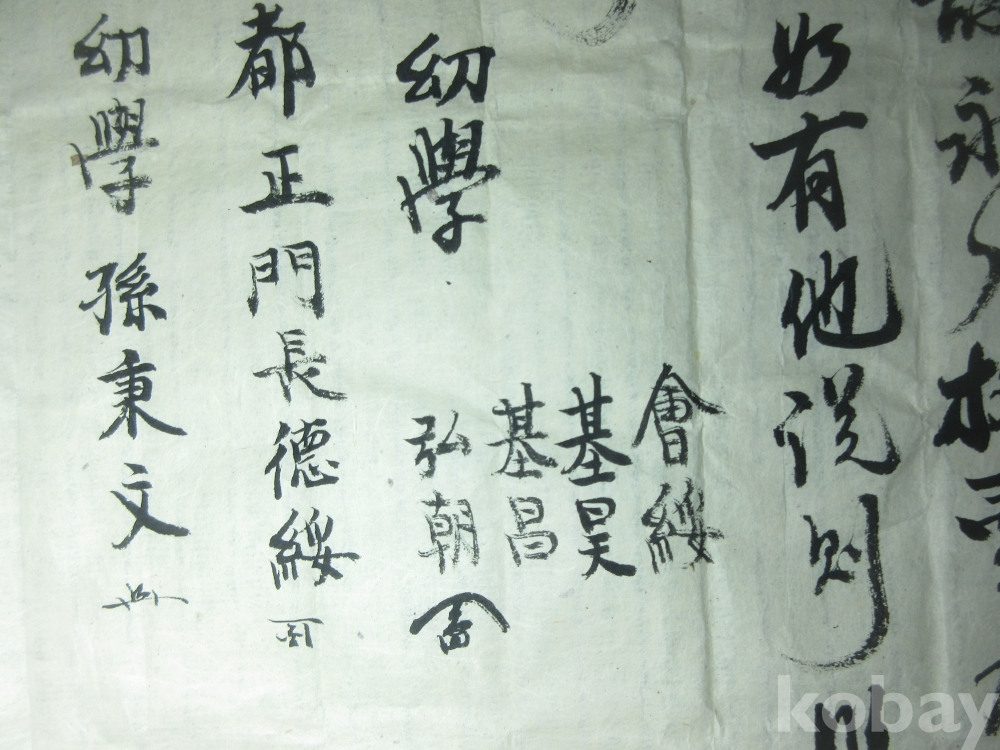 永
如有他說則
會綏
基昊
基昌
幼學 弘朝
都正門長德綏
幼學 孫秉文
kobay